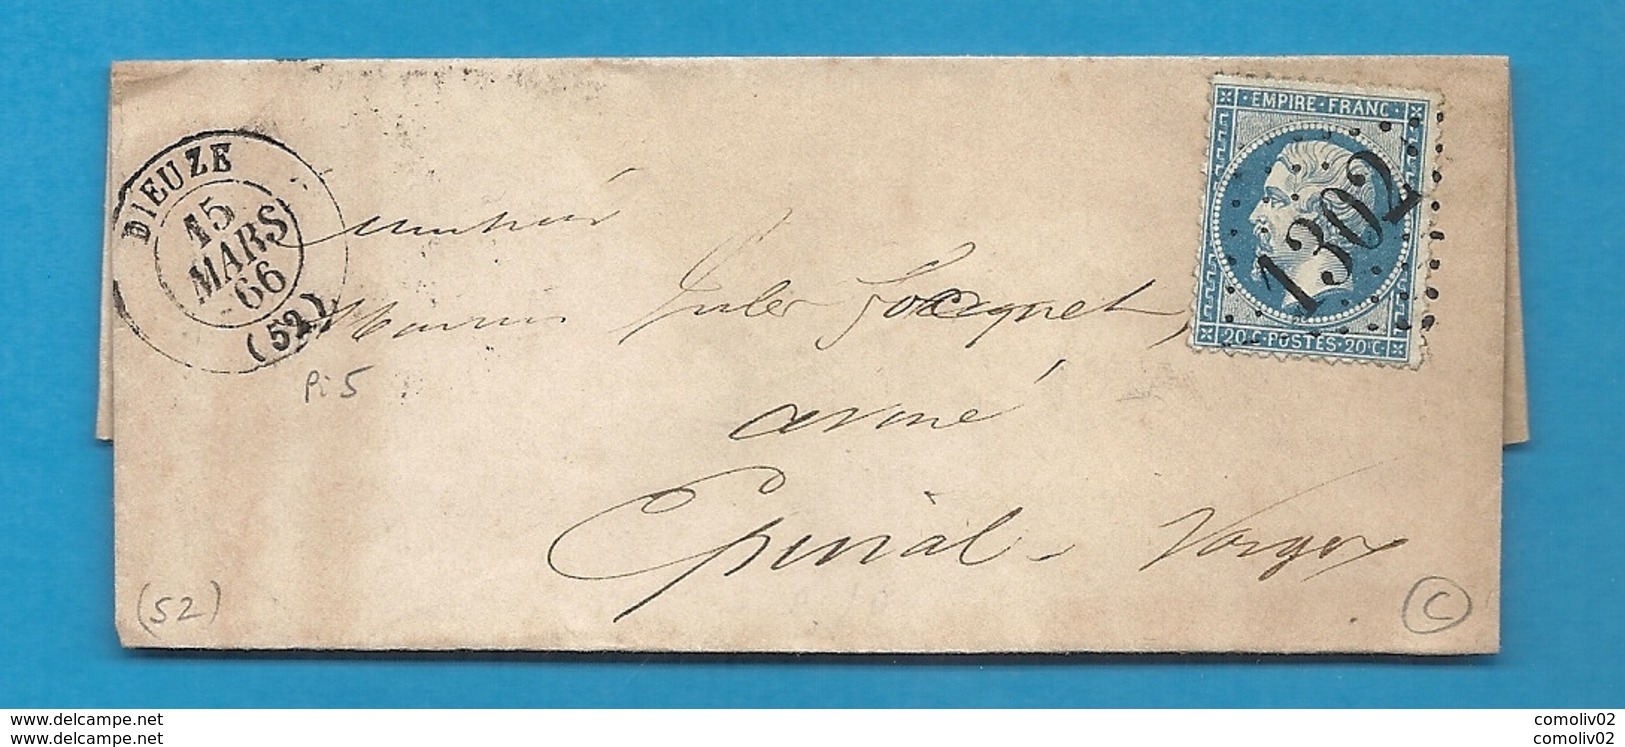 DIEUZE
15
MARS
66
(52)
EMPIRE · FRANC ·
1302
20 C · POSTES · 20 C
Monsieur
Jules Jocquel,
avoué
Epinal - Vosges
Pi 5
(52)
C
www.delcampe.net
www.delcampe.net
comoliv02
comoliv02